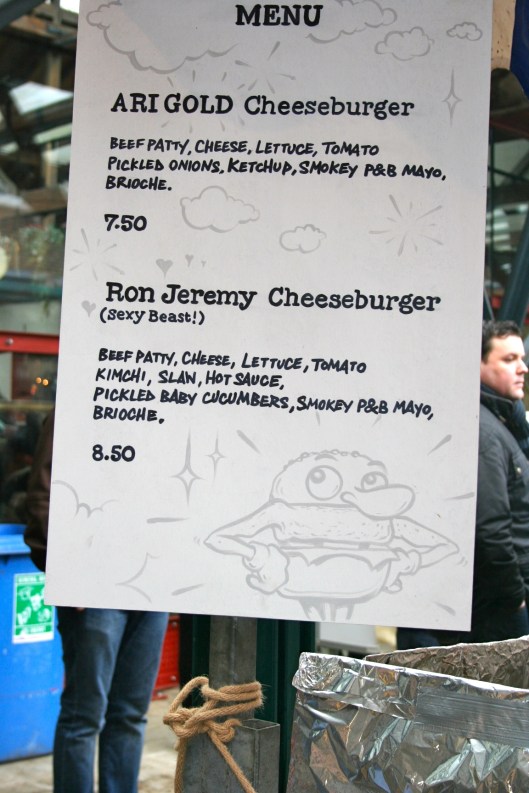 MENU
ARI GOLD Cheeseburger
BEEF PATTY, CHEESE, LETTUCE, TOMATO
PICKLED ONIONS, KETCHUP, SMOKEY P&B MAYO,
BRIOCHE.
7.50
Ron Jeremy Cheeseburger
(Sexy Beast!)
BEEF PATTY, CHEESE, LETTUCE, TOMATO
KIMCHI, SLAW, HOT SAUCE,
PICKLED BABY CUCUMBERS, SMOKEY P&B MAYO,
BRIOCHE.
8.50